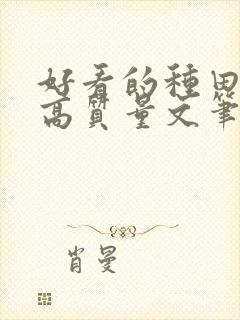 好看的種田
高質量文筆
肖曼